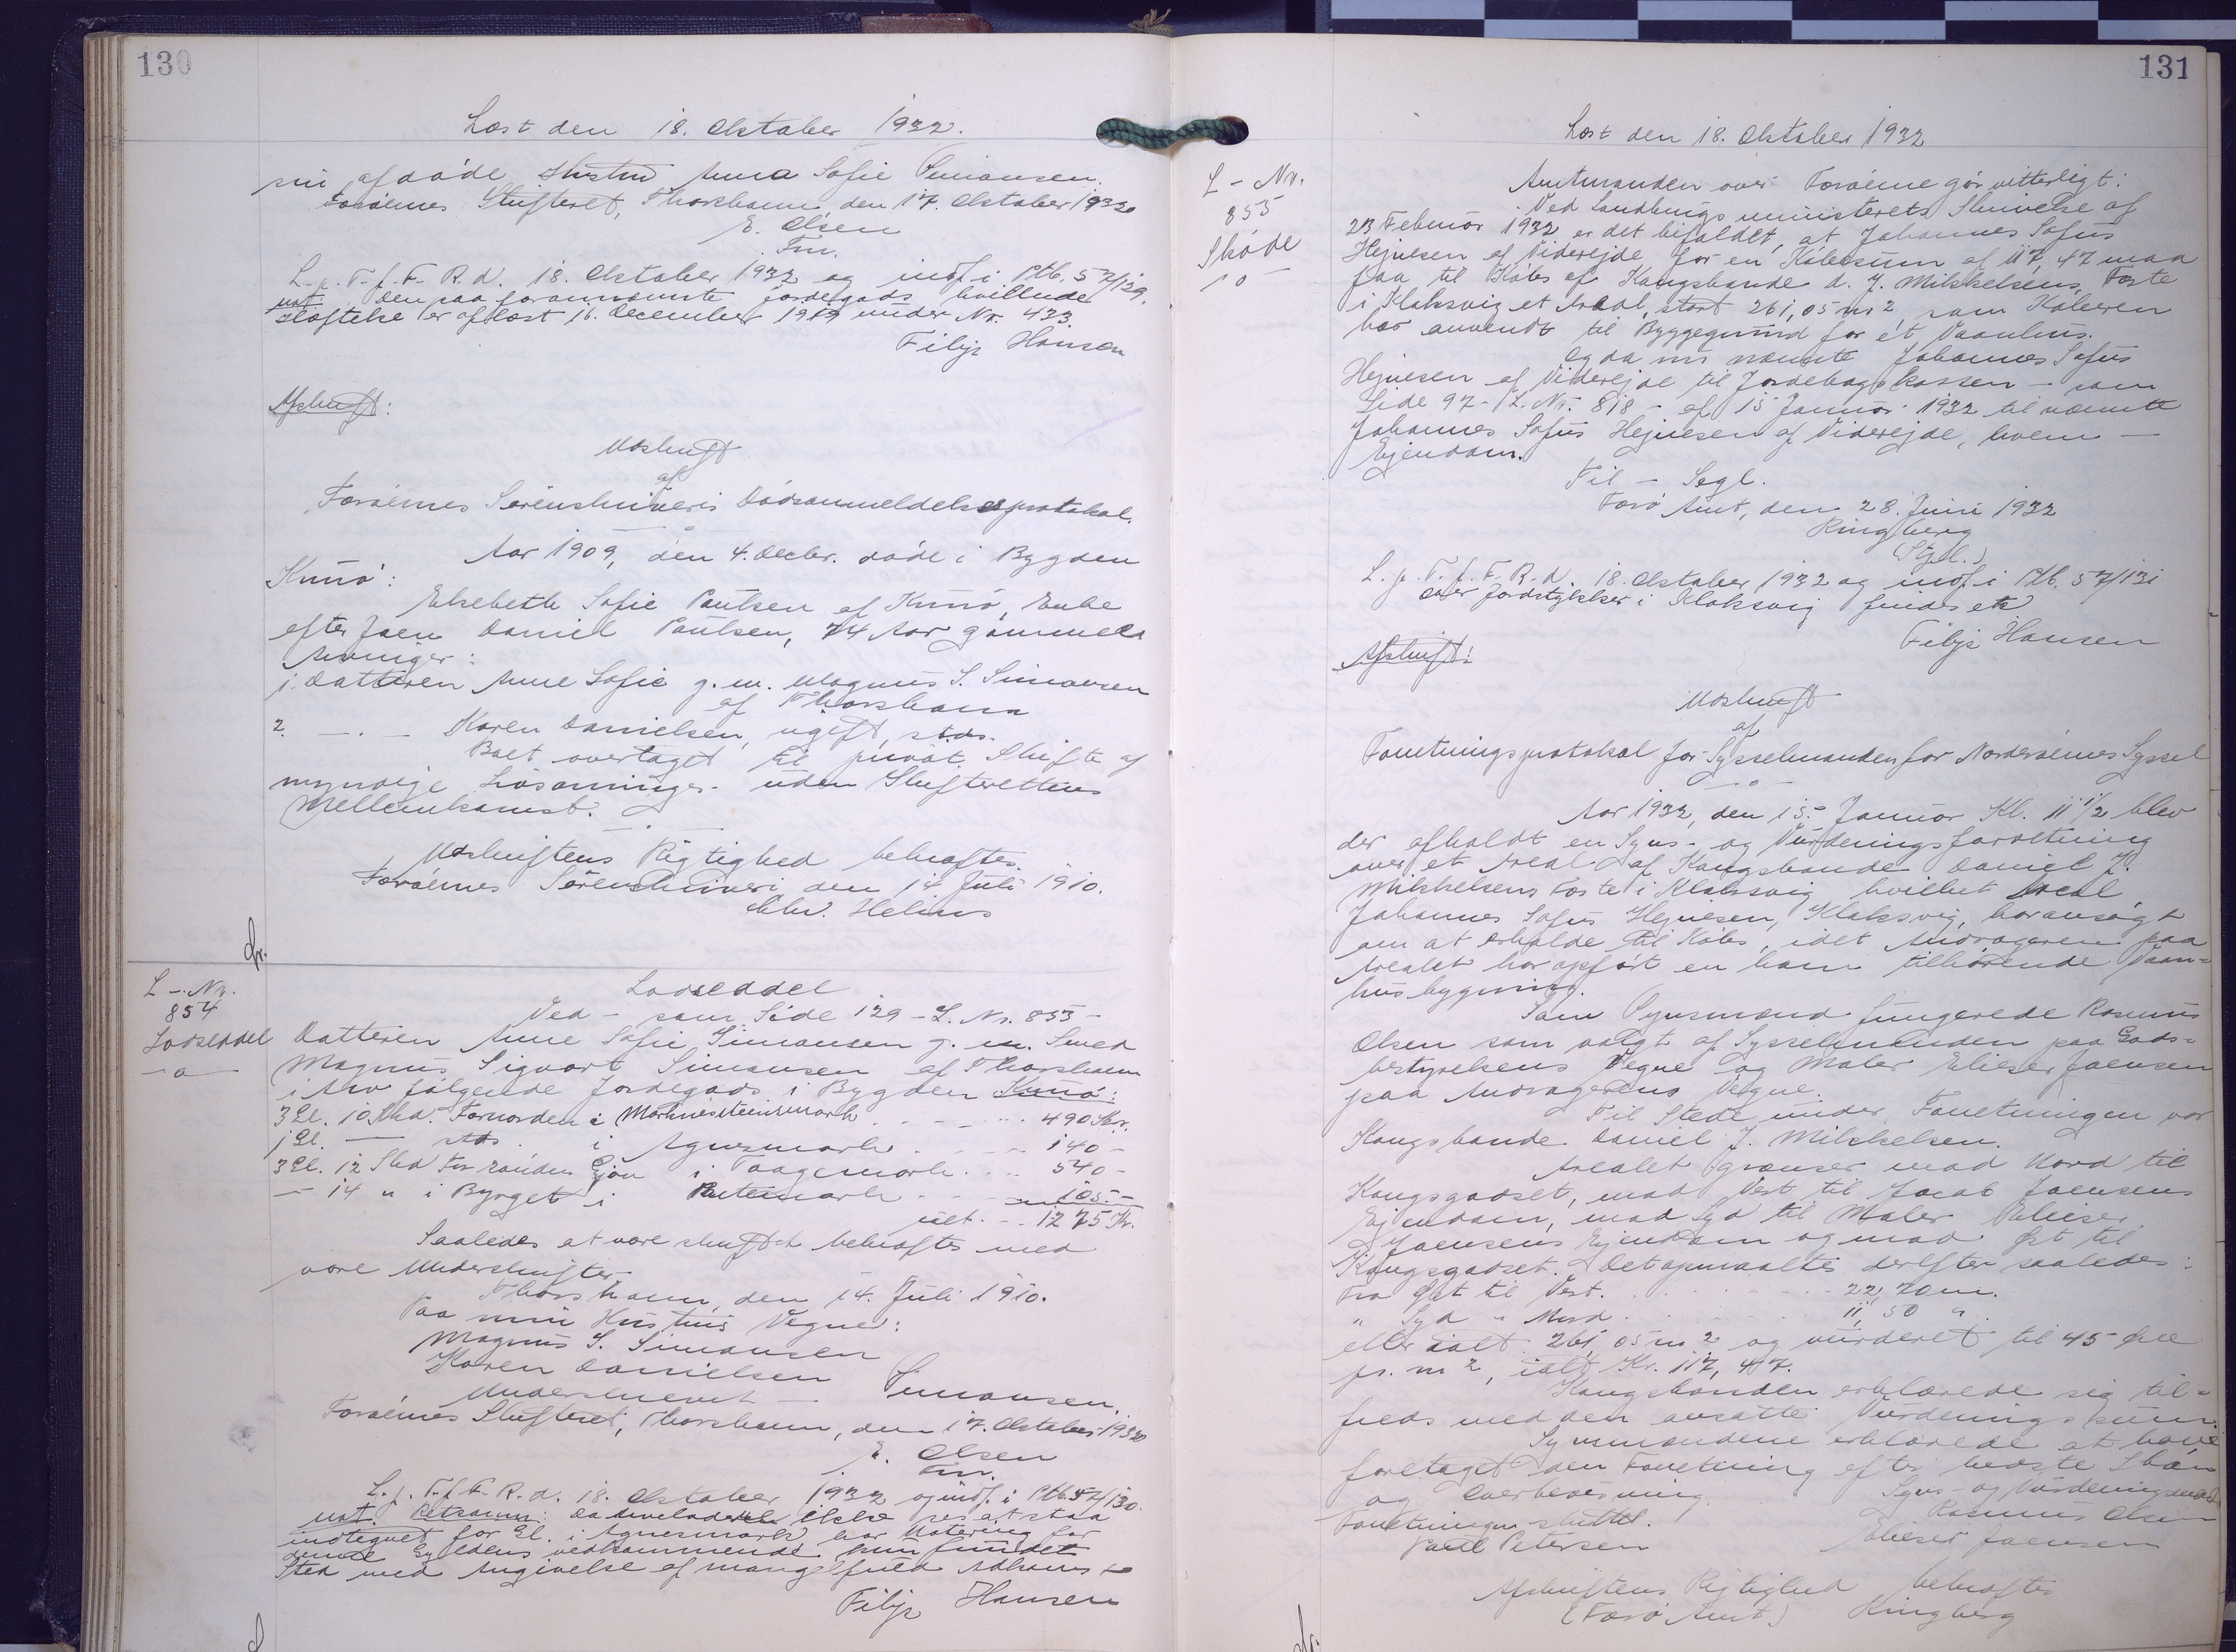 130
Læst den 18. Oktober 1932.
sin afdøde Hustru Anna Sofie Simonsen.
Færøernes Skifteret, Thorshavn den 17. Oktober 1932
E. Olsen
Fm.
L. p. T. f. F. R. d. 18. Oktober 1932 og indf. i Ptb. 57/129.
Not. Den paa forannævnte Jordegods hvilende
er aflæst 16. December 1919 under Nr. 433
Filip Hansen
Afskrift:
Udskrift
af
Færøernes Sorenskriveris Dødsanmeldelsesprotokol.
Aar 1909, den 4. Decbr. døde i Bygden
Kunø:
Elsebeth Sofie Poulsen af Kunø, Enke
efter Joen Daniel Poulsen, 74 Aar gammel
Arvinger:
1. Datteren Anne Sofie g. m. Magnus S. Simonsen
af Thorshavn
2. — . — Karen Danielsen, ugift, stds.
Boet overtaget til privat Skifte af
myndige Livsarvinger uden Skifterettens
Mellemkomst.
Udskriftens Rigtighed bekræftes.
Færøernes Sorenskriveri, den 14 Juli 1910.
Chr. Helms
L-Nr.
854
Lodseddel
Lodseddel
Ved - som Side 129 - L. Nr. 853 -
Datteren Anne Sofie Simonsen g. m. Smed
Magnus Sigvart Simonsen af Thorshavn
i Arv følgende Jordegods i Bygden Kunø:
3 Gl. 10 Skd. Fornorden i Mørknesteinsmark . . . 490 Kr.
1 Gl. — stds. i Agnesmark . . . 140 -
3 Gl. 12 Skd For Gjov i Toagemark . . . 540 -
— 14 " i Byrget i . . . 105 -
ialt . . 1275 Kr.
Saaledes at være skiftet bekræftes med
vore Underskrifter.
Thorshavn, den 14. Juli 1910.
Paa min Hustrus Vegne:
Magnus S. Simonsen
Karen Danielsen
Underskrevet — Simonsen.
Færøernes Skifteret, Thorshavn, den 17. Oktober 1932
E. Olsen
Fm.
L. p. T. f. F. R. d. 18. Oktober 1932 og indf. i Ptb. 57/130.
Not. Retsanm: Da Arveladeren ikke ses at staa
indtegnet for Gl. i Agnesmark har Notering for
denne Gyldens vedkommende kun fundet
Sted med Angivelse af mangelfuld Adkomst
Filip Hansen
131
Læst den 18. Oktober 1932
L - Nr.
855
Skøde
Amtmanden over Færøerne gør vitterligt:
Ved Landbrugsministerets Skrivelse af
23 Februar 1932 er det bifaldet, at Johannes Sofus
Hejnesen af Viderejde for en Købesum af 117,47 maa
faa til Købs af Kongsbonde D. J. Mikkelsens Fæste
i Klaksvig et Areal, stort 261,05 m2 som Køberen
har anvendt til Byggegrund for et Vaanhus.
Og da nu nævnte Johannes Sofus
Hejnesen af Viderejde til Jordebogskassen - som
Side 97 - L. Nr. 818 - af 15 Januar 1932 til nævnte
Johannes Sofus Hejnesen af Viderejde, hvem —
Ejendom.
Til - Segl.
Færø Amt, den 28. Juni 1932
Ringberg
(Sgl.)
L. p. T. f. F. R. d. 18. Oktober 1932 og indf. i Ptb. 57/131
over Jordstykker i Klaksvig findes ek
Filip Hansen
Afskrift:
Udskrift
af
Forretningsprotokol for Sysselmanden for Norderøernes Syssel
Aar 1932, den 15. Januar Kl. 11 1/2 blev
der afholdt en Syns- og Vurderingsforretning
over et Areal af Kongsbonde Daniel J.
Mikkelsens Fæste i Klaksvig hvilket Areal
Johannes Sofus Hejnesen, Klaksvig, har ansøgt
om at erholde til Købs, idet Andrageren paa
Arealet har opført en ham tilhørende Vaan-
husbygning.
Som Synsmænd fungerede Rasmus
Olsen som valgt af Sysselmanden paa Gods-
bestyrelsens Vegne og Maler Elieser Joensen
paa Andragerens Vegne.
Til Stede under Forretningen var
Kongsbonde Daniel J. Mikkelsen.
Arealet grænser mod Nord til
Kongsgodset, mod Vest til Jacob Joensens
Ejendom, mod Syd til Maler Elieser
Joensens Ejendom og mod Øst til
Kongsgodset. Det opmaaltes derefter saaledes:
Fra Øst til Vest . . . 22,70 m.
" Syd " Nord . . . 11,50 "
eller ialt 261,05 m2 og vurderet til 45 Øre
pr. m2, ialt Kr. 117,47.
Kongsbonden erklærede sig til-
freds med den ansatte Vurderingssum.
Synsmændene erklærede at have
foretaget den Forretning efter bedste Skøn
og Overbevisning.
Forretningen sluttet.
Syns- og Vurderingsmænd
Rasmus Olsen
Poul Petersen
Elieser Joensen
Afskriftens Rigtighed bekræftes
(Færø Amt.) Ringberg